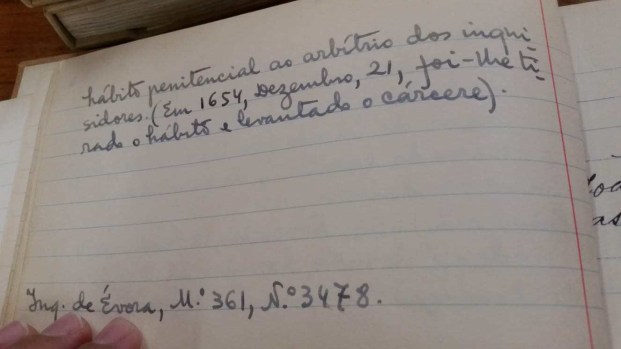 hábito penitencial ao arbítrio dos inqui-
sidores. (Em 1654, Dezembro, 21, foi-lhe ti-
rado o hábito e levantado o cárcere).
Inq. de Évora, M.º 361, N.º 3478.
as